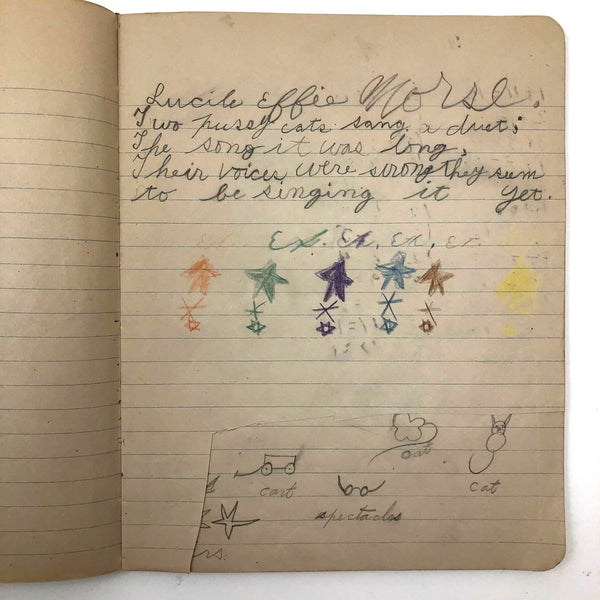 Lucile Effie Morse.
Two pussy cats sang a duet;
The song it was long,
Their voices were strong They sem
to be singing it yet.
Ex. Ex. Ex. Ex. Ex.
cat
cart
cat
spectacles
rs.